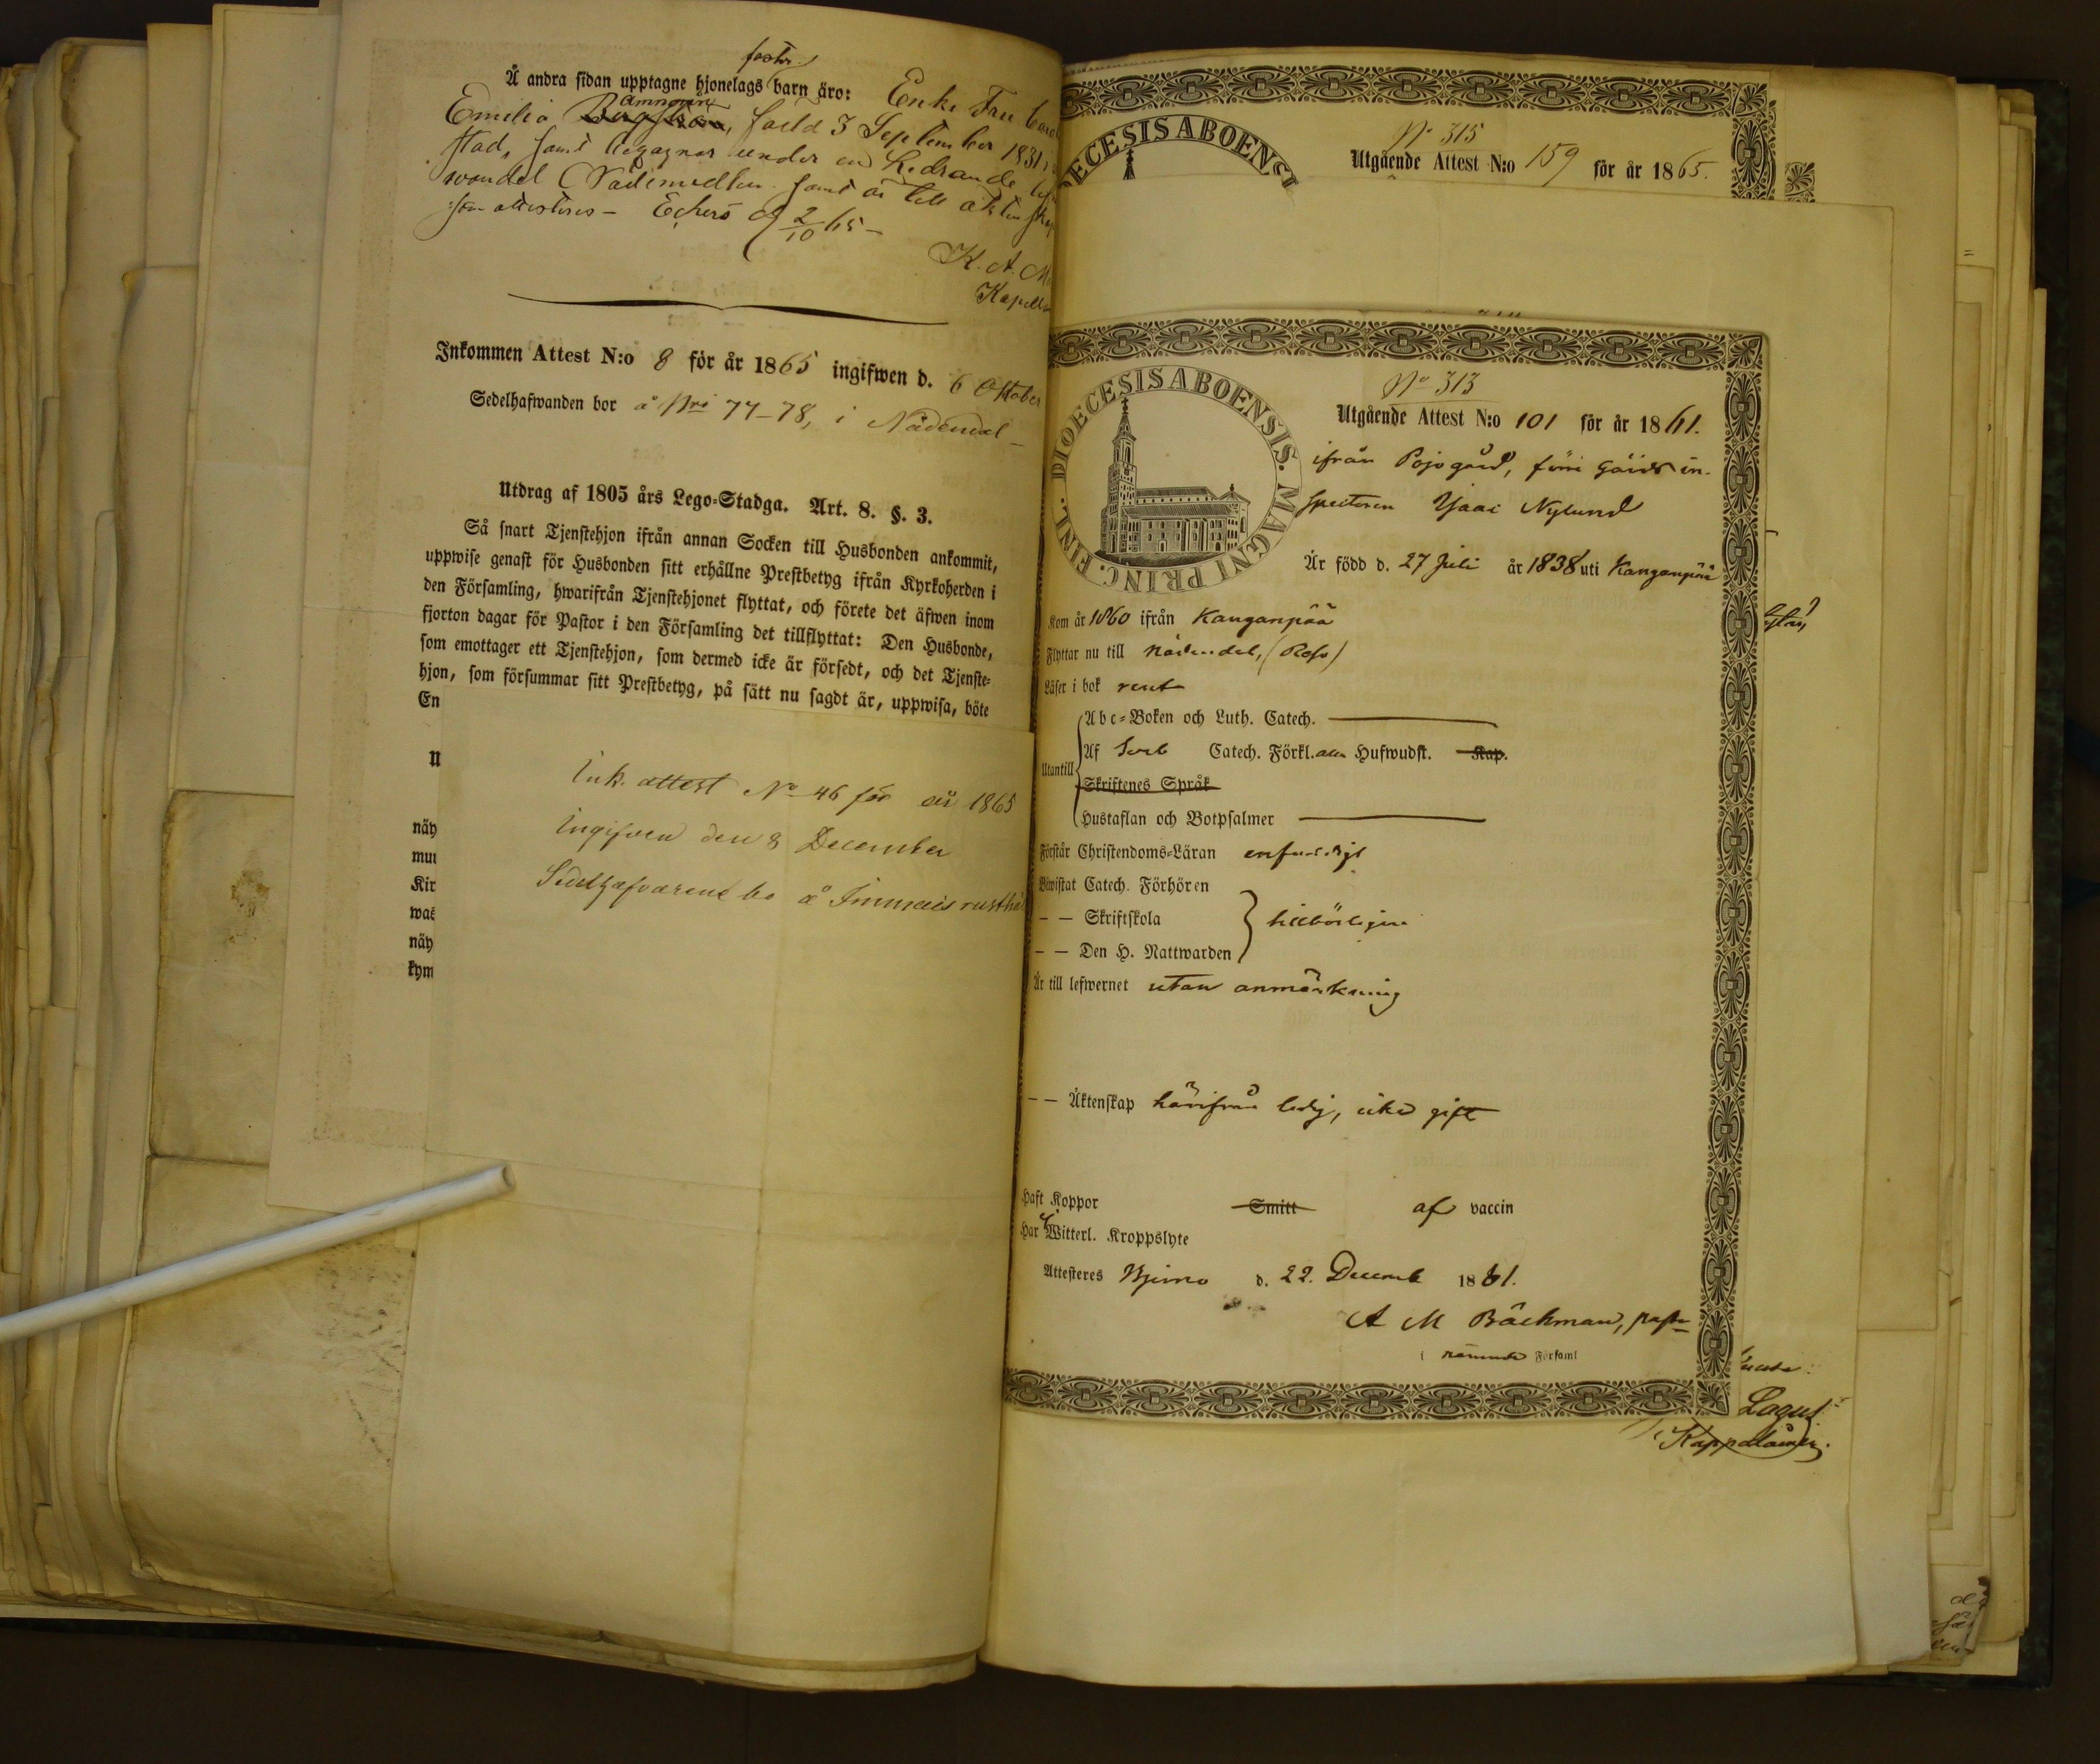 fostr.
Å andra sidan upptagne hjonelags barn äro: Enke Fru
Emilia född 3 September 1831
stad, samt begagnar under en
wandel Nådemedlen samt är till äktenskap
attesteras – Eckerö d. 2/10 65 –
K. A.
Inkommen Attest N:o 8 för år 1865 ingifwen d. 6 Oktober
Sedelhafwanden bor å Nri 77–78, i Nådendal –
Utdrag af 1805 års Lego-Stadga. Art. 8. §. 3.
Så snart Tjenstehjon ifrån annan Socken till Husbonden ankommit,
uppwise genast för Husbonden sitt erhållne Prestbetyg ifrån Kyrkoherden i
den Församling, hwarifrån Tjenstehjonet flyttat, och förete det äfwen inom
fjorton dagar för Pastor i den Församling det tillflyttat: Den Husbonde,
som emottager ett Tjenstehjon, som dermed icke är försedt, och det Tjenste-
hjon, som försummar sitt Prestbetyg, på sätt nu sagdt är, uppwisa, böte
En
Ink. attest No 46 för år 1865
Ingifven den 8 December
Sedelhafvarene bo å Immais
näy
Kir
näy
kym
DIOECESIS ABOENSI
No 315
Utgående Attest N:o 159 för år 1865.
DIOECESIS ABOENSIS. MAGNI PRINC. FINL.
No 313
Utgående Attest N:o 101 för år 1861.
ifrån Pojo gård, förre Gårds in-
spectoren Nylund
Är född d. 27 Juli år 1838 uti Kangasspää
Kom år 1860 ifrån Kangasspää
Flyttar nu till Nådendal,
Läser i bok rent
Utantill
Abc-Boken och Luth. Catech.
Af Sveb Catech. Förkl. alla Hufwudst. Kap.
Skriftenes Språk
Hustaflan och Botpsalmer
Förstår Christendoms-Läran enfaldigt
Biwistat Catech. Förhören
– – Skriftskola
– – Den H. Nattwarden
Är till lefwernet utan anmärkning
– – Äktenskap härifrån ledig, icke gift
Haft Koppor Smitt af vaccin
Har Witterl. Kroppslyte
Attesteres d. 22. Decemb 1861.
A M Bäckman, past
i nämnde Församl
Lagus
Kappalainen.